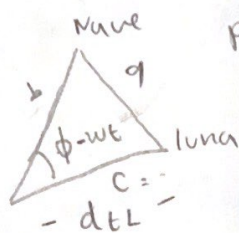 Nave
b
a
φ-wt
luna
C =
- dtL -